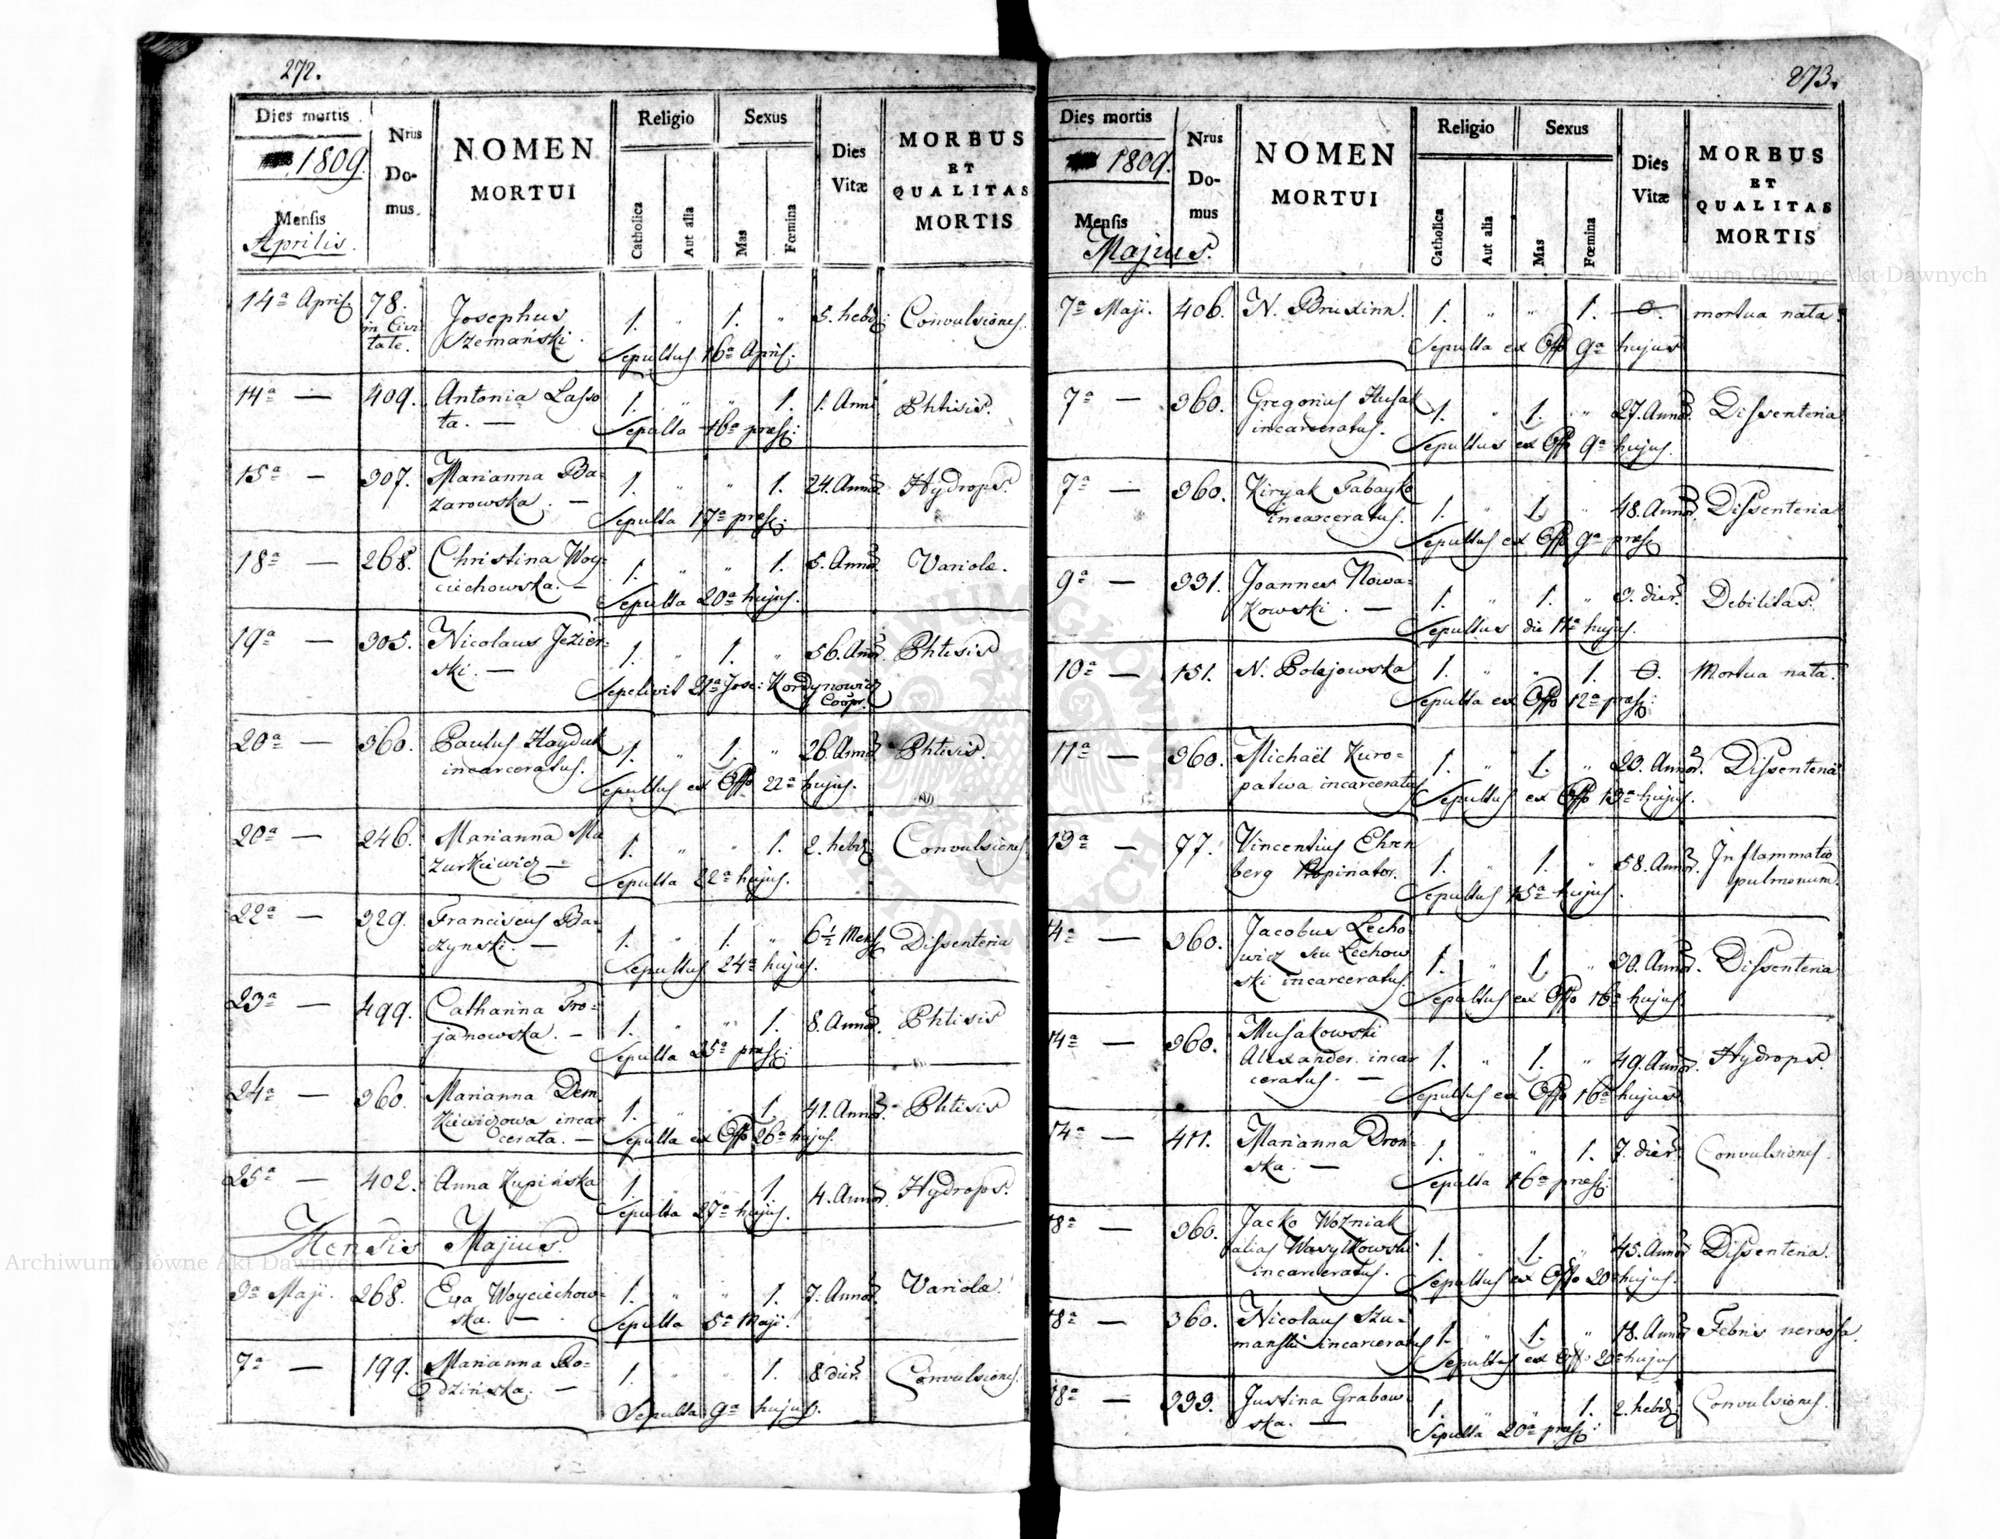 272.
Dies mortis
1809.
Mensis
Aprilis.
Nrus
Do-
mus.
NOMEN
MORTUI
Religio
Catholica
Aut alia
Sexus
Mas
Fœmina
Dies
Vitæ
MORBUS
ET
QUALITAS
MORTIS
14ª April 78. in Civi- tate. Josephus Szemański. 1. " 1. " 5. hebd: Convulsiones.
Sepultus 16ª April.
14ª — 409. Antonia Lasso
ta. — 1. " " 1. 1. Anni Phtisis.
Sepulta 16ª præs:
15ª — 307. Marianna Ba-
zarowska. — 1. " " 1. 24. Annor. Hydrops.
Sepulta 17ª præs:
18ª — 268. Christina Woy-
ciechowska. — 1. " " 1. 5. Annor. Variolæ.
Sepulta 20ª hujus.
19ª — 305. Nicolaus Jezier-
ski. — 1. " 1. " 56. Annor. Phtisis
Sepelivit 21ª Jose: Kordynowicz
Coopr.
20ª — 360. Paulus Hayduk
incarceratus. 1. " 1. " 26. Annor. Phtisis.
Sepultus ex Offo 22ª hujus.
20ª — 246. Marianna Ma
zurkiewicz — 1. " " 1. 2. hebd: Convulsiones.
Sepulta 22ª hujus.
22ª — 329. Franciscus Ba-
zynski. — 1. " 1. " 6½ Mens. Dissenteria
Sepultus 24ª hujus.
23ª — 499. Catharina Tro-
janowska. — 1. " " 1. 8. Annor. Phtisis
Sepulta 25ª præs:
24ª — 360. Marianna Dem
kiewiczowa incar
cerata. — 1. " " 1. 41. Annor. Phtisis
Sepulta ex Offo 26ª hujus.
25ª — 402. Anna Kupińska 1. " " 1. 4. Annor. Hydrops.
Sepulta 27ª hujus.
Mensis Majus.
3ª Maji. 268. Eva Woyciechow-
ska. — 1. " " 1. 7. Annor. Variolæ.
Sepulta 5ª Maji.
7ª — 199. Marianna Ro-
dzińska. — 1. " " 1. 8 dier. Convulsiones.
Sepulta 9ª hujus.
273.
Dies mortis
1809.
Mensis
Majus.
Nrus
Do-
mus
NOMEN
MORTUI
Religio
Catholica
Aut alia
Sexus
Mas
Fœmina
Dies
Vitæ
MORBUS
ET
QUALITAS
MORTIS
7ª Maji. 406. N. Bruxinn. 1. " " 1. 0. mortua nata.
Sepulta ex Offo 9ª hujus
7ª — 360. Gregorius Husak
incarceratus. 1. " 1. " 27. Annor. Dissenteria
Sepultus ex Offo 9ª hujus.
7ª — 360. Kiryak Tabayko
incarceratus. 1. " 1. " 48. Annor. Dissenteria
Sepultus ex Offo 9ª præs:
9ª — 331. Joannes Nowa-
kowski. — 1. " 1. " 3. dier. Debilitas.
Sepultus die 11ª hujus.
10ª — 151. N. Bolejowska 1. " " 1. 0. Mortua nata.
Sepulta ex Offo 12ª præs:
11ª — 360. Michaël Kuro-
patwa incarceratus 1. " 1. " 20. Annor. Dissenteria
Sepultus ex Offo 13ª hujus.
13ª — 77. Vincentius Ehren
berg Propinator. 1. " 1. " 58. Annor. Inflammatio
pulmonum.
Sepultus 15ª hujus.
14ª — 360. Jacobus Lecho-
wicz seu Lechow
ski incarceratus. 1. " 1. " 30. Annor. Dissenteria
Sepultus ex Offo 16ª hujus
14ª — 360. Musakowski
Alexander. incar
ceratus. — 1. " 1. " 49. Annor. Hydrops.
Sepultus ex Offo 16ª hujus
14ª — 411. Marianna Dron-
ska. — 1. " " 1. 7. dier. Convulsiones.
Sepulta 16ª præs:
18ª — 360. Jacko Woźniak
alias Wasylkowski
incarceratus. 1. " 1. " 45. Annor. Dissenteria.
Sepultus ex Offo 20ª hujus.
18ª — 360. Nicolaus Szu-
manski incarceratus 1. " 1. " 18. Annor. Febris nervosa.
Sepultus ex Offo 20ª hujus
18ª — 399. Justina Grabow
ska. — 1. " " 1. 2. hebd: Convulsiones.
Sepulta 20ª præs:
Archiwum Główne Akt Dawnych
Archiwum Główne Akt Dawnych
ARCHIWUM GŁÓWNE AKT DAWNYCH